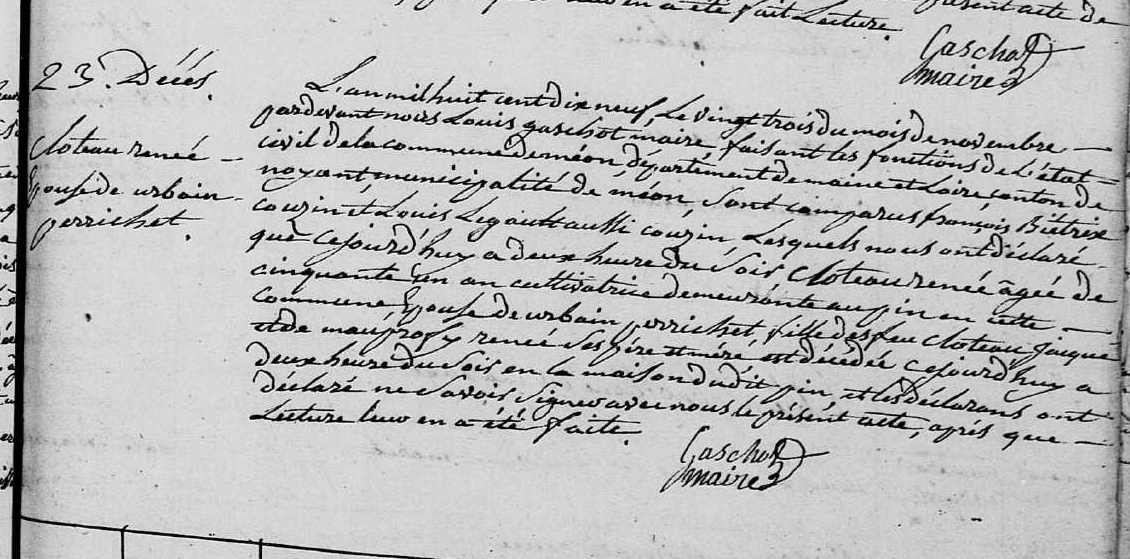 en a été fait Lecture.
Gaschot
maire
23. Décés.
Cloteau reneé
Epouse de urbain
perrichet.
L'an mil huit cent dix neuf, Le vingt trois du mois de novembre
pardevant nous Louis gaschot maire faisant les fonctions de L'état
civil de la commune de méon, département de maine et Loire, canton de
noyant, municipalité de méon, sont comparus françois Biétrix
couzin et Louis Legault aussi couzin, Lesquels nous ont déclaré
que cejourd'huy a deux heure du Soir Cloteau reneé ageé de
cinquante un an cultivatrice demeurante au pin en cette
commune, Epouse de urbain perrichet, fille des feu Cloteau Jacque
et de reneé Ses pére et mére, est décédée cejourd'huy a
deux heure du Soir en la maison dudit pin, et les déclarans ont
déclaré ne Savoir Signer avec nous le présent acte, aprés que
Lecture leur en a été faite.
Gaschot
maire